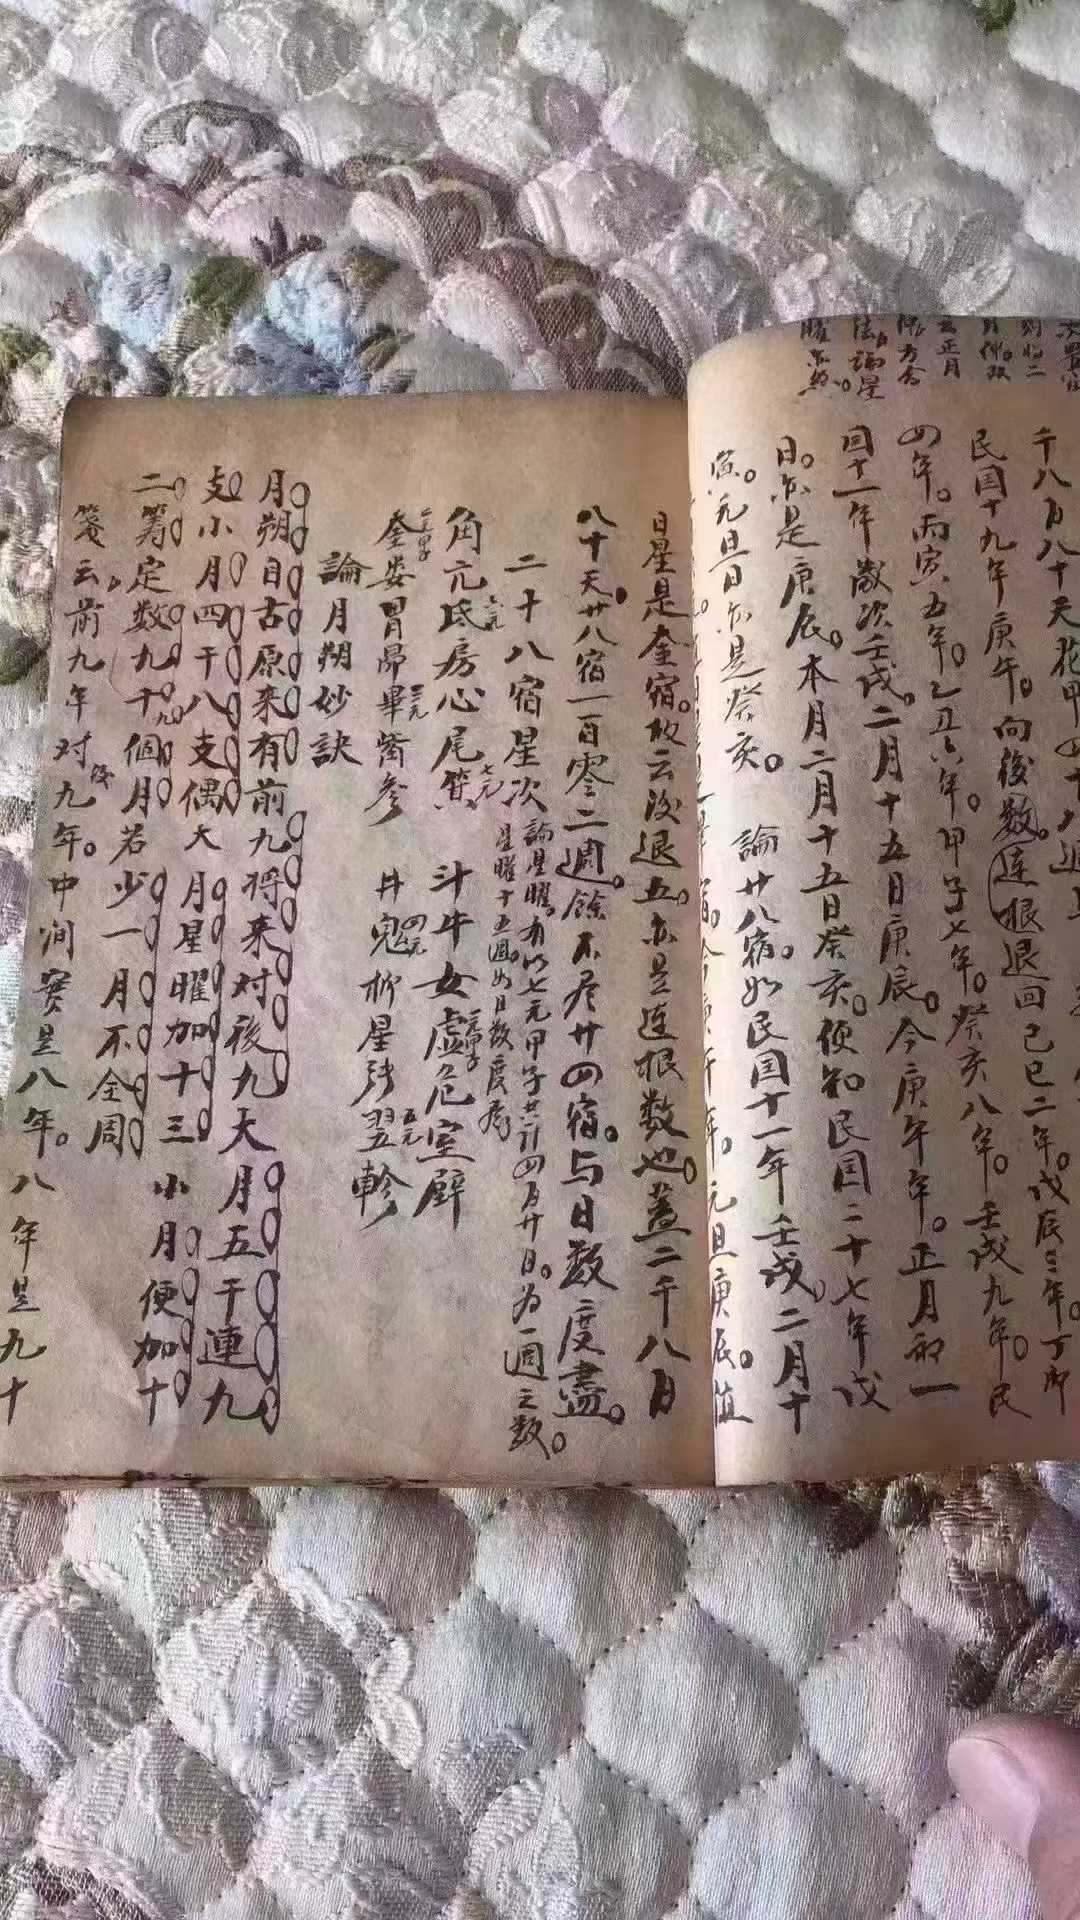 千八百八十天花甲四十八週
民国十九年庚午。向後数。連根退回己巳二年。戊辰三年。丁卯
四年。丙寅五年。乙丑六年。甲子七年。癸亥八年。壬戌九年。民
国十一年歲次壬戌。二月十五日庚辰。今庚午年。正月初一
日。亦是庚辰。本月二月十五日癸亥。便知民国二十七年戊
寅。元旦日亦是癸亥。 論廿八宿。如民国十一年壬戌。二月十
年。元旦庚辰。值
日星是奎宿。故云没退五。亦是連根数也。蓋二千八百
八十天廿八宿一百零二週。餘不尽廿四宿。与日数度盡。
二十八宿星次 論星曜。有以七元甲子共計四百廿日。為一週之数。
星曜十五週。如日数度齊
角亢氐房心尾箕 斗牛女虛危室壁
奎婁胃昴畢觜參 井鬼柳星張翌軫
論月朔妙訣
月朔自古原来有前九将来对後九大月五干連九
支小月四干八支偶大月星曜加十三小月便加十
二籌定数九十個月若少一月不全周
箋云前九年对後九年。中间實是八年。八年是九十